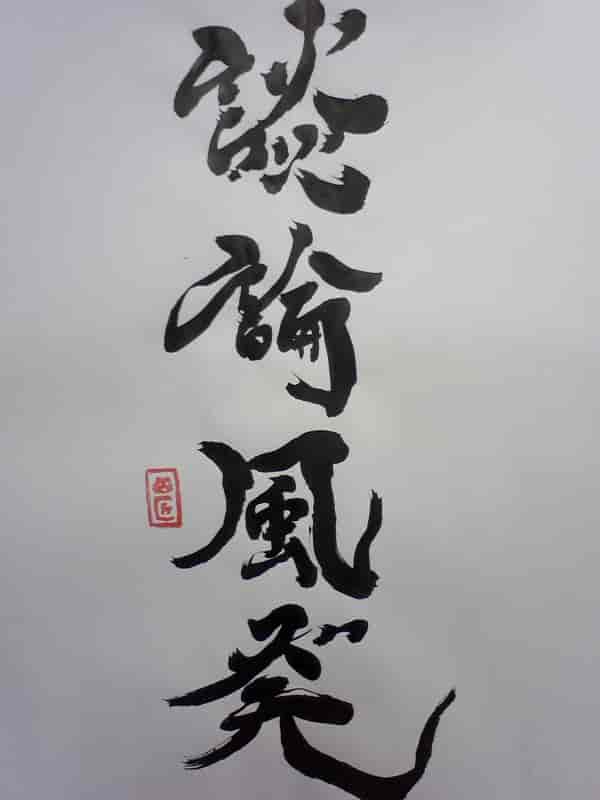 談論風発